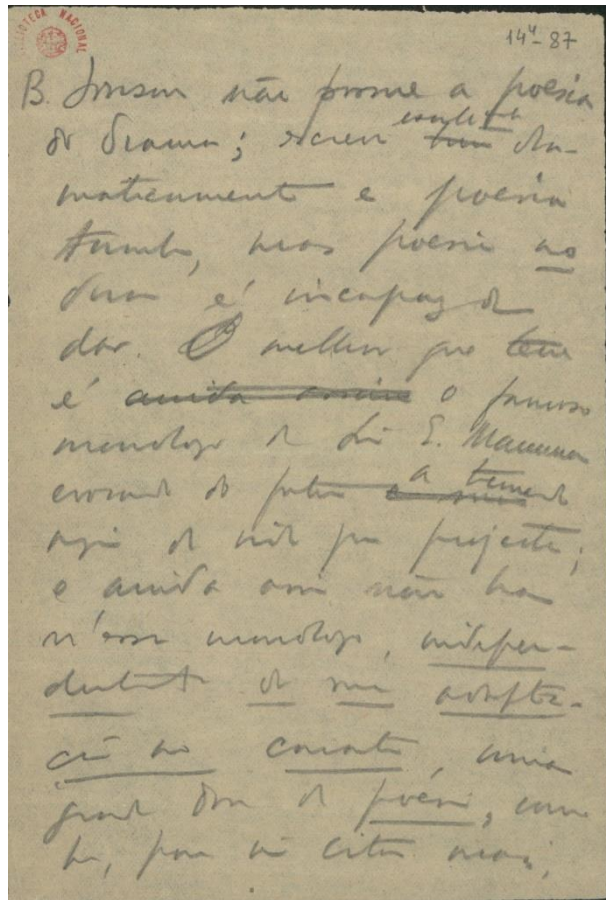 BIBLIOTECA NACIONAL
14⁴-87
B. Jonson não possue a poesia
do drama; escreve
dra-
maticamente e poesia
tambem, mas poesia no
drama é incapaz de
dar. O melhor que tem
é ainda assim o famoso
monologo de Sir E. Mammon
a tremenda
orgia de vida que projecta;
e ainda assim não ha
n'esse monologo, indepen-
dentemente de sua adapta-
ção ao caracter, uma
grande dose de poesia, como
ha, para não citar mais,